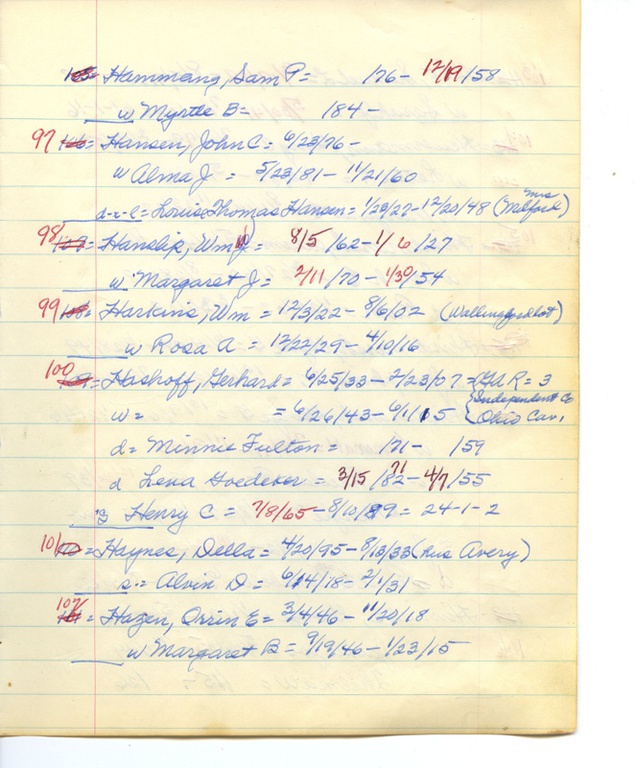 105= Hammang, Sam P= /76- 12/19/58
w Myrtle B= 184-
97 106= Hansen, John C= 6/28/76-
w Alma J = 5/23/81- 11/21/60
d-r-l= Louise Thomas Hansen= 1/29/27-12/20/48 (Mrs Milford)
98 107= Hanslip, Wm J= 8/5/62-1/6/27
w Margaret J= 2/11/70-1/30/54
99 108= Harkins, Wm = 12/3/22-8/6/02 (Wallingford lot)
w Rosa A = 12/22/29-4/10/16
100 109= Hashoff, Gerhard= 6/25/33-2/23/07=GAR=3
w= =6/26/43-6/1/15 {Independent Co Ohio Cav.
d= Minnie Fulton= 171- 159
d Lena Goedeker= 3/15/82-4/7/55 71
s Henry C = 7/8/65-8/10/89= 24-1-2
101 110= Haynes, Della= 4/20/95-8/13/33 (Rus Avery)
s.= Alvin D= 6/14/18-2/1/31
102 111= Hazen, Orrin E= 3/4/46-11/20/18
w Margaret B= 9/19/46-1/23/15